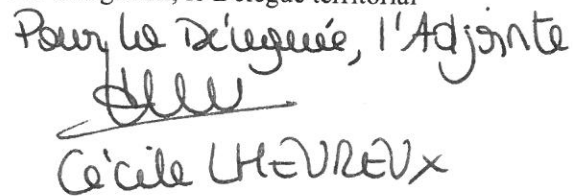 le Délégué territorial
Pour la Déléguée, l'Adjointe
Cécile LHEUREUX